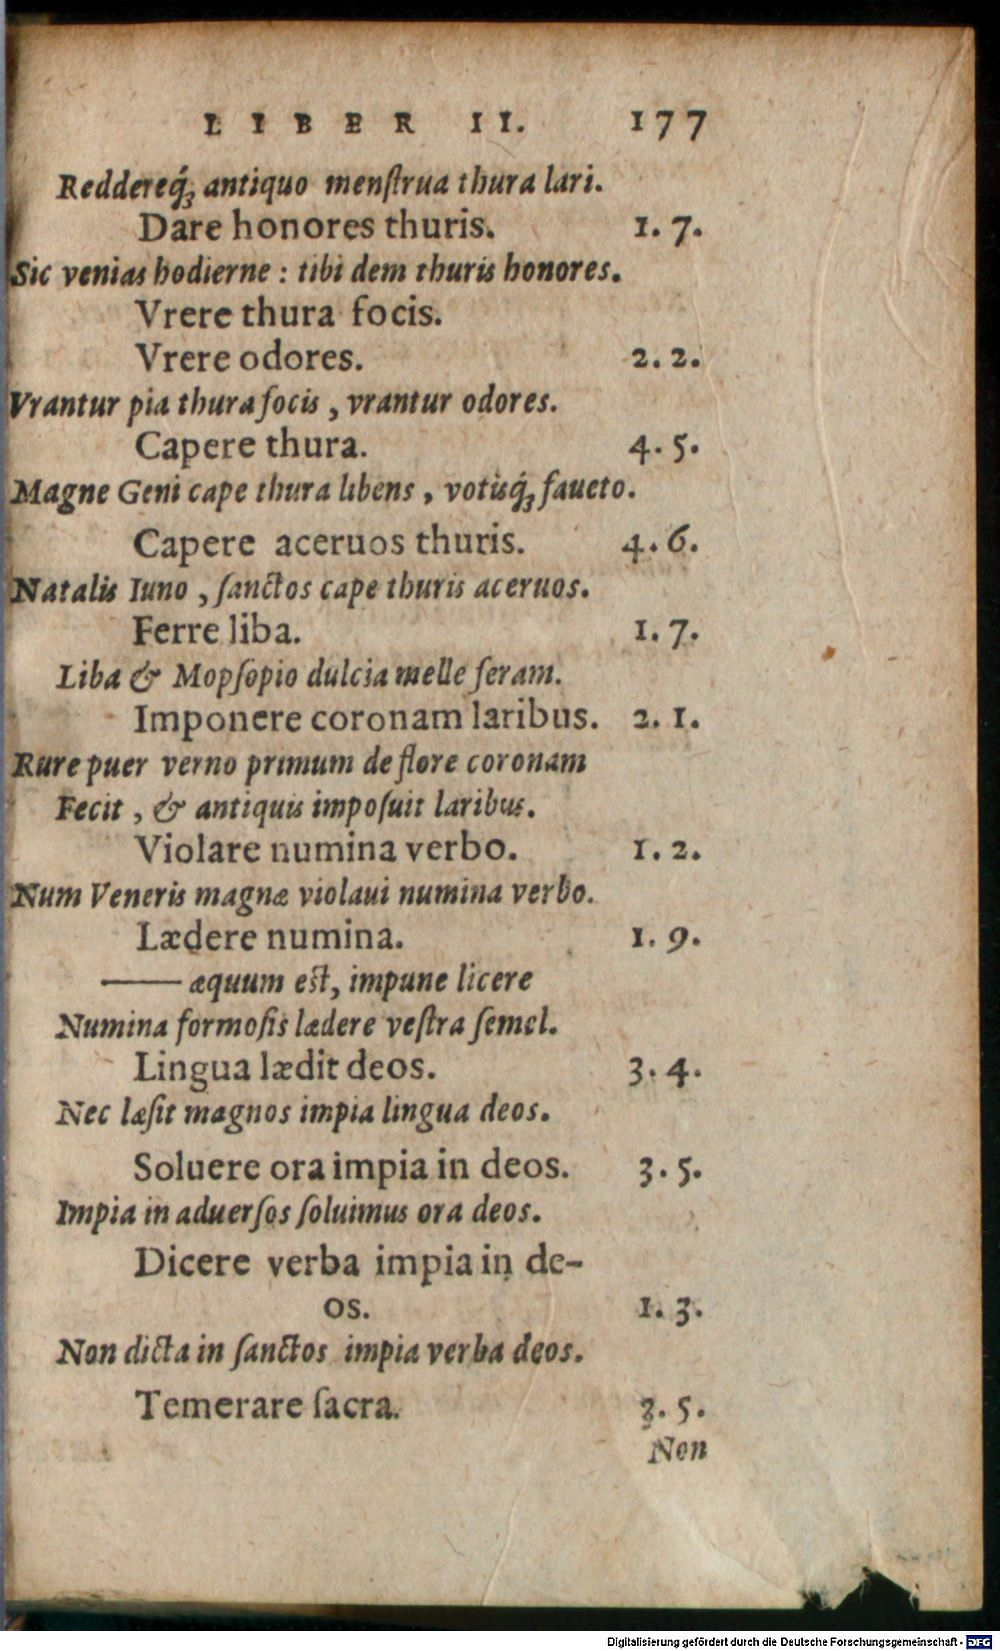 LIBER II. 177
Reddereq́; antiquo menſtrua thura lari.
Dare honores thuris. 1. 7.
Sic venias hodierne : tibi dem thuris honores.
Vrere thura focis.
Vrere odores. 2. 2.
Vrantur pia thura focis , vrantur odores.
Capere thura. 4. 5.
Magne Geni cape thura libens , votisq́; faueto.
Capere aceruos thuris. 4. 6.
Natalis Iuno , ſanctos cape thuris aceruos.
Ferre liba. 1. 7.
Liba & Mopſopio dulcia melle feram.
Imponere coronam laribus. 2. 1.
Rure puer verno primum de flore coronam
Fecit , & antiquis impoſuit laribus.
Violare numina verbo. 1. 2.
Num Veneris magnæ violaui numina verbo.
Lædere numina. 1. 9.
—— æquum eſt, impune licere
Numina formoſis lædere veſtra ſemel.
Lingua lædit deos. 3. 4.
Nec læſit magnos impia lingua deos.
Soluere ora impia in deos. 3. 5.
Impia in aduerſos ſoluimus ora deos.
Dicere verba impia in de-
os. 1. 3.
Non dicta in ſanctos impia verba deos.
Temerare ſacra. 3. 5.
Non
Digitalisierung gefördert durch die Deutsche Forschungsgemeinschaft - DFG